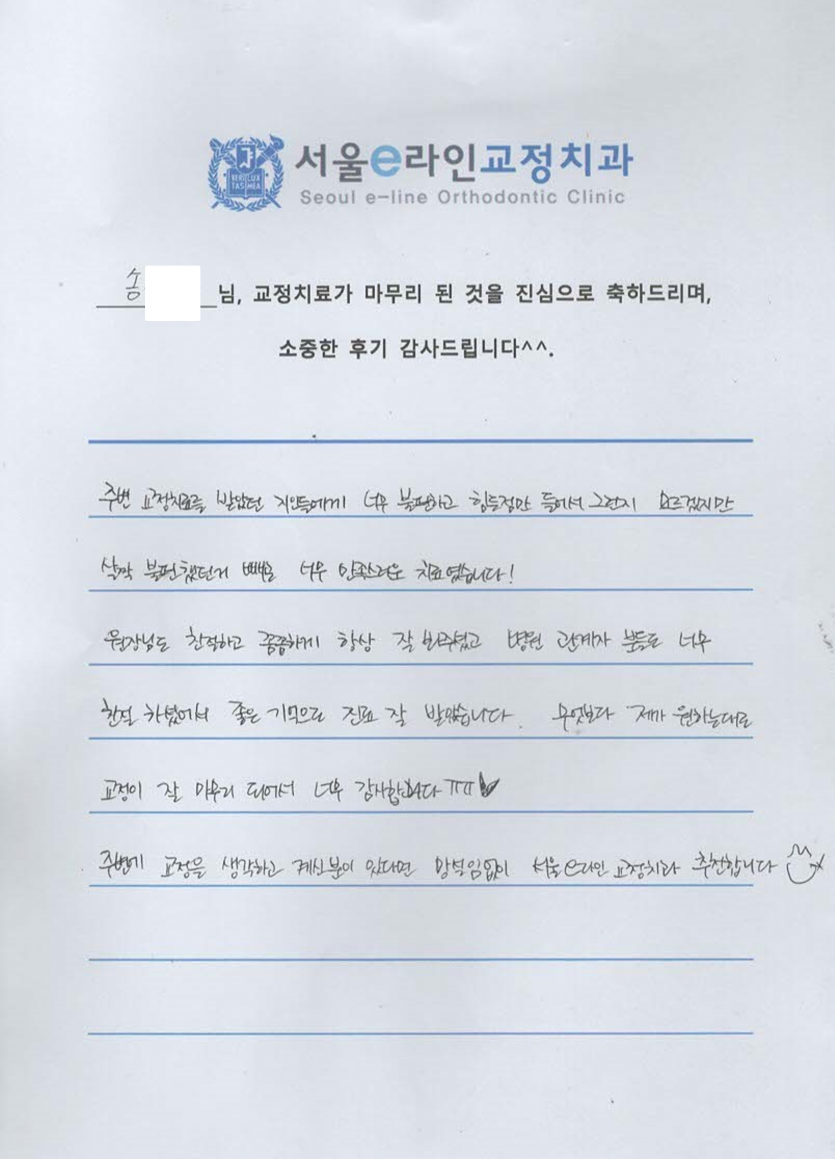 VERI LUX TAS MEA
서울e라인교정치과
Seoul e-line Orthodontic Clinic
송 님, 교정치료가 마무리 된 것을 진심으로 축하드리며,
소중한 후기 감사드립니다^^.
주변 교정치료를 받았던 지인들에게 너무 불편하고 힘든점만 들어서 그런지 모르겠지만
살짝 불편했던거 빼고 너무 만족스러운 치료였습니다!
원장님도 친절하고 꼼꼼하게 항상 잘 봐주셨고 병원 관계자 분들도 너무
친절 하셔서 좋은 기억으로 진료 잘 받았습니다. 무엇보다 제가 원하는대로
교정이 잘 마무리 되어서 너무 감사합니다 ㅠㅠ♥
주변에 교정을 생각하고 계신분이 있다면 망설임없이 서울e라인 교정치과 추천합니다